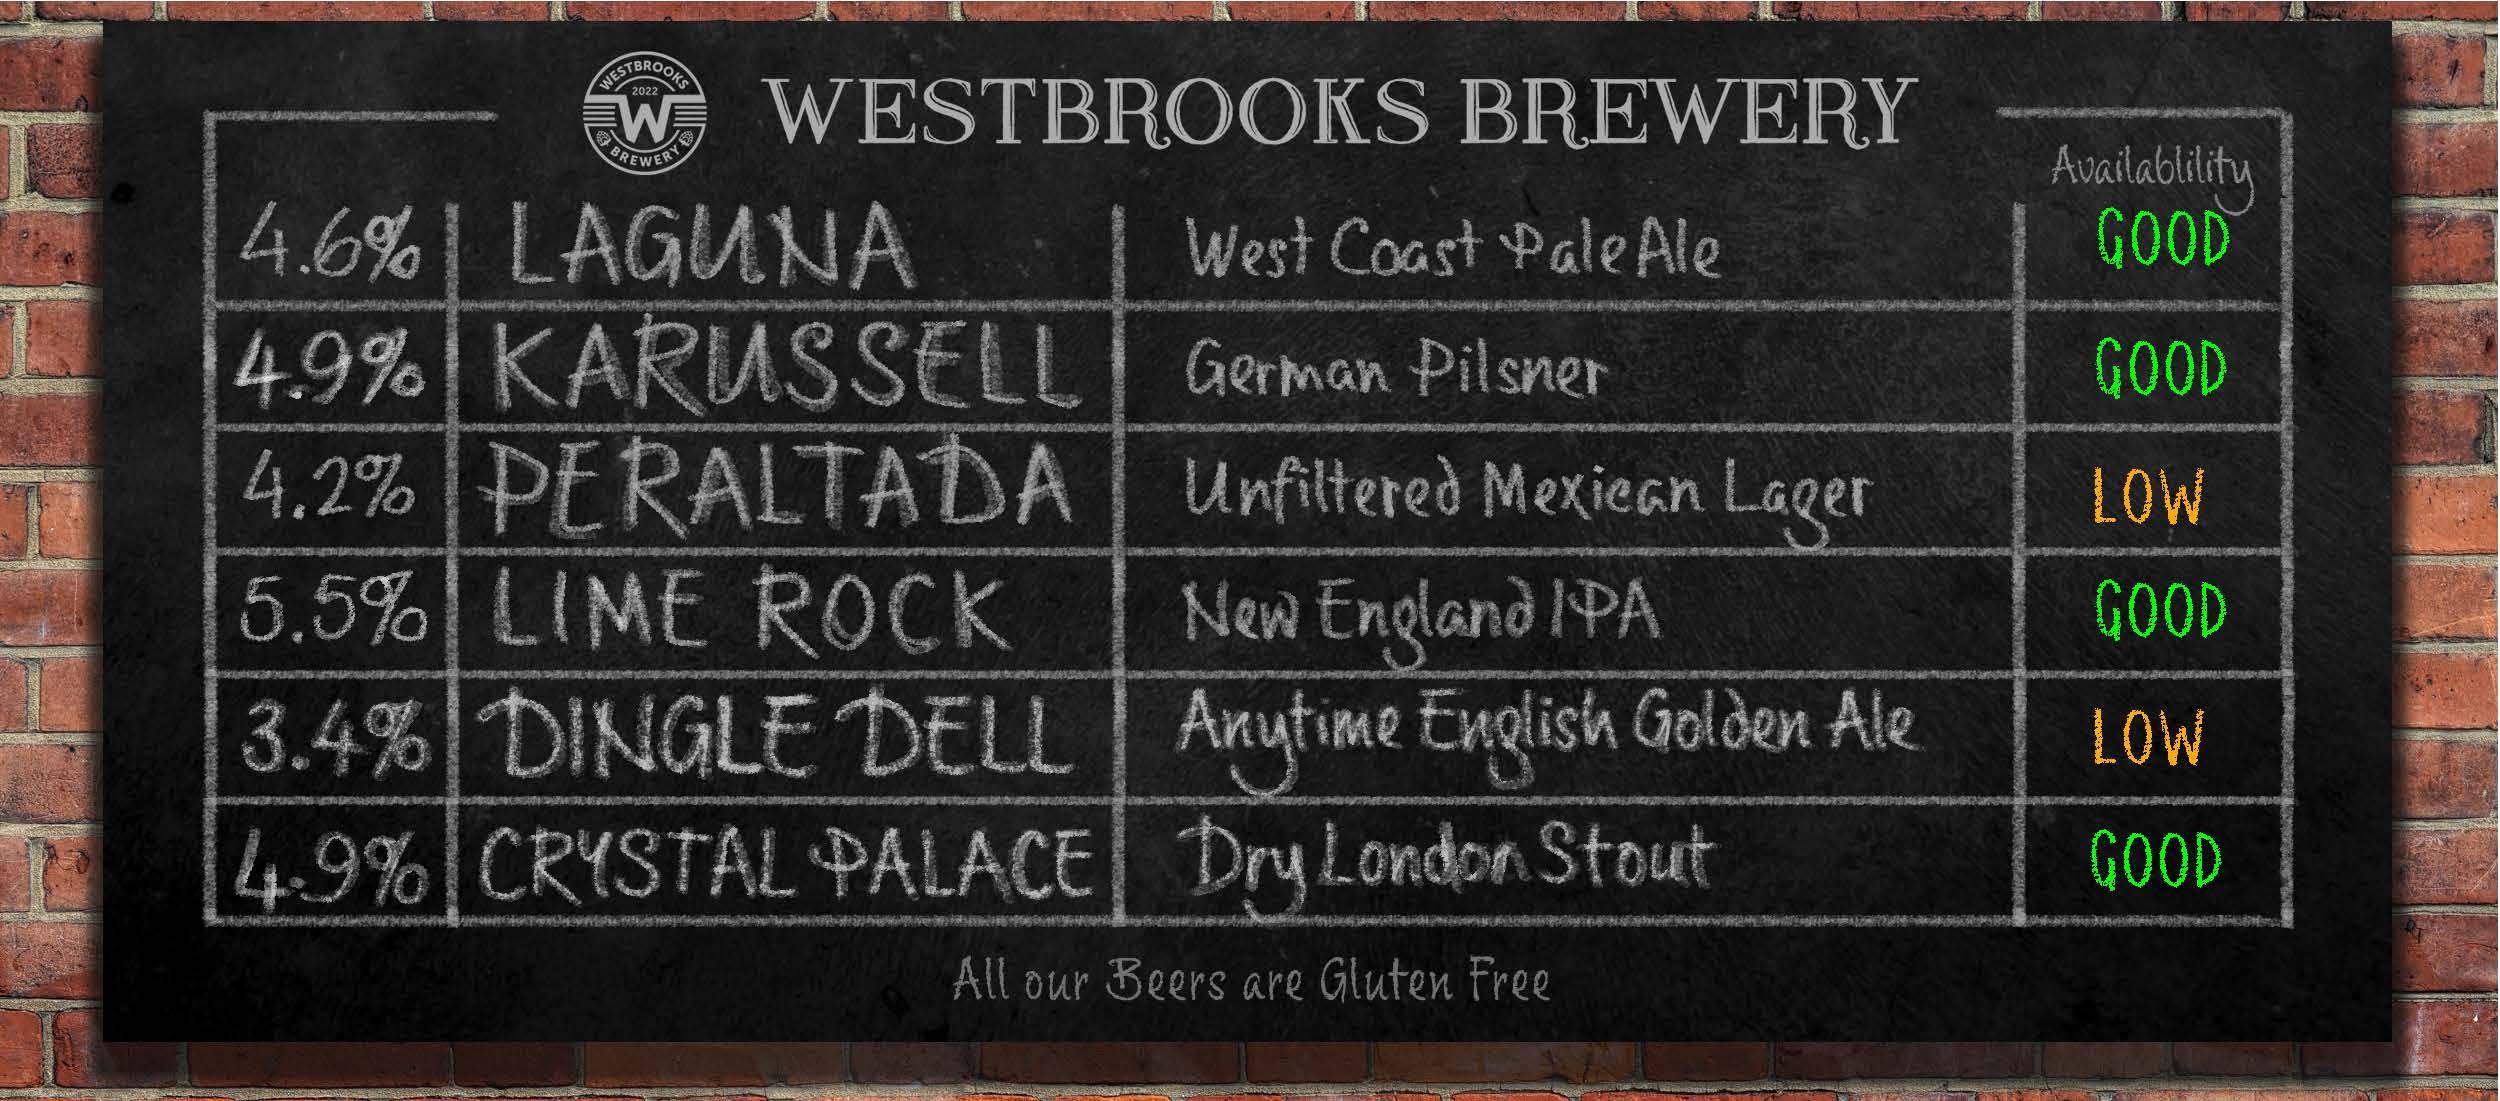 WESTBROOKS
2022
W
BREWERY
WESTBROOKS BREWERY
Availablility
4.6% LAGUNA West Coast Pale Ale GOOD
4.9% KARUSSELL German Pilsner GOOD
4.2% PERALTADA Unfiltered Mexican Lager LOW
5.5% LIME ROCK New England IPA GOOD
3.4% DINGLE DELL Anytime English Golden Ale LOW
4.9% CRYSTAL PALACE Dry London Stout GOOD
All our Beers are Gluten Free